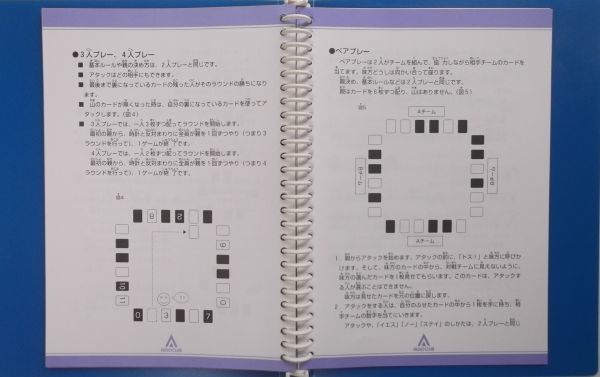 ●3人プレー、4人プレー
■ 基本ルールや親の決め方は、2人プレーと同じです。
■ アタックはどの相手にもできます。
■ 最後まで裏になっているカードの残った人がそのラウンドの勝ちになります。
■ 山のカードが無くなった時は、自分の裏になっているカードを使ってアタックします。(図4)
■ 3人プレーでは、一人3枚ずつ配ってラウンドを開始します。
最初の親から、時計と反対まわりに全員が親を1回ずつやり(つまり3ラウンドを行って)、1ゲームが終了です。
4人プレーでは、一人2枚ずつ配ってラウンドを開始します。
最初の親から、時計と反対まわりに全員が親を1回ずつやり(つまり4ラウンドを行って)、1ゲームが終了です。
図4
8 2
9
10
11 0
0 3 7
●ペアプレー
ペアプレーは2人がチームを組んで、協力しながら相手チームのカードを当てます。味方どうしは向かい合って座ります。
親決め、基本ルールなどは2人プレーと同じです。
親はカードを6枚ずつ配り、山はありません。(図5)
図5
Aチーム
Bチーム
Bチーム
Aチーム
1. 親からアタックを始めます。アタックの前に、「トス!」と味方に呼びかけます。そして、味方のカードの中から、対戦チームに見えないように、味方の選んだカードを1枚見せてもらいます。このカードは、アタックする人が選ぶことはできません。
味方は見せたカードを元の位置に戻します。
2. アタックをする人は、自分のふせたカードの中から1枚を手に持ち、相手チームの数字を当てにいきます。
アタックや、「イエス」「ノー」「ステイ」のしかたは、2人プレーと同じ